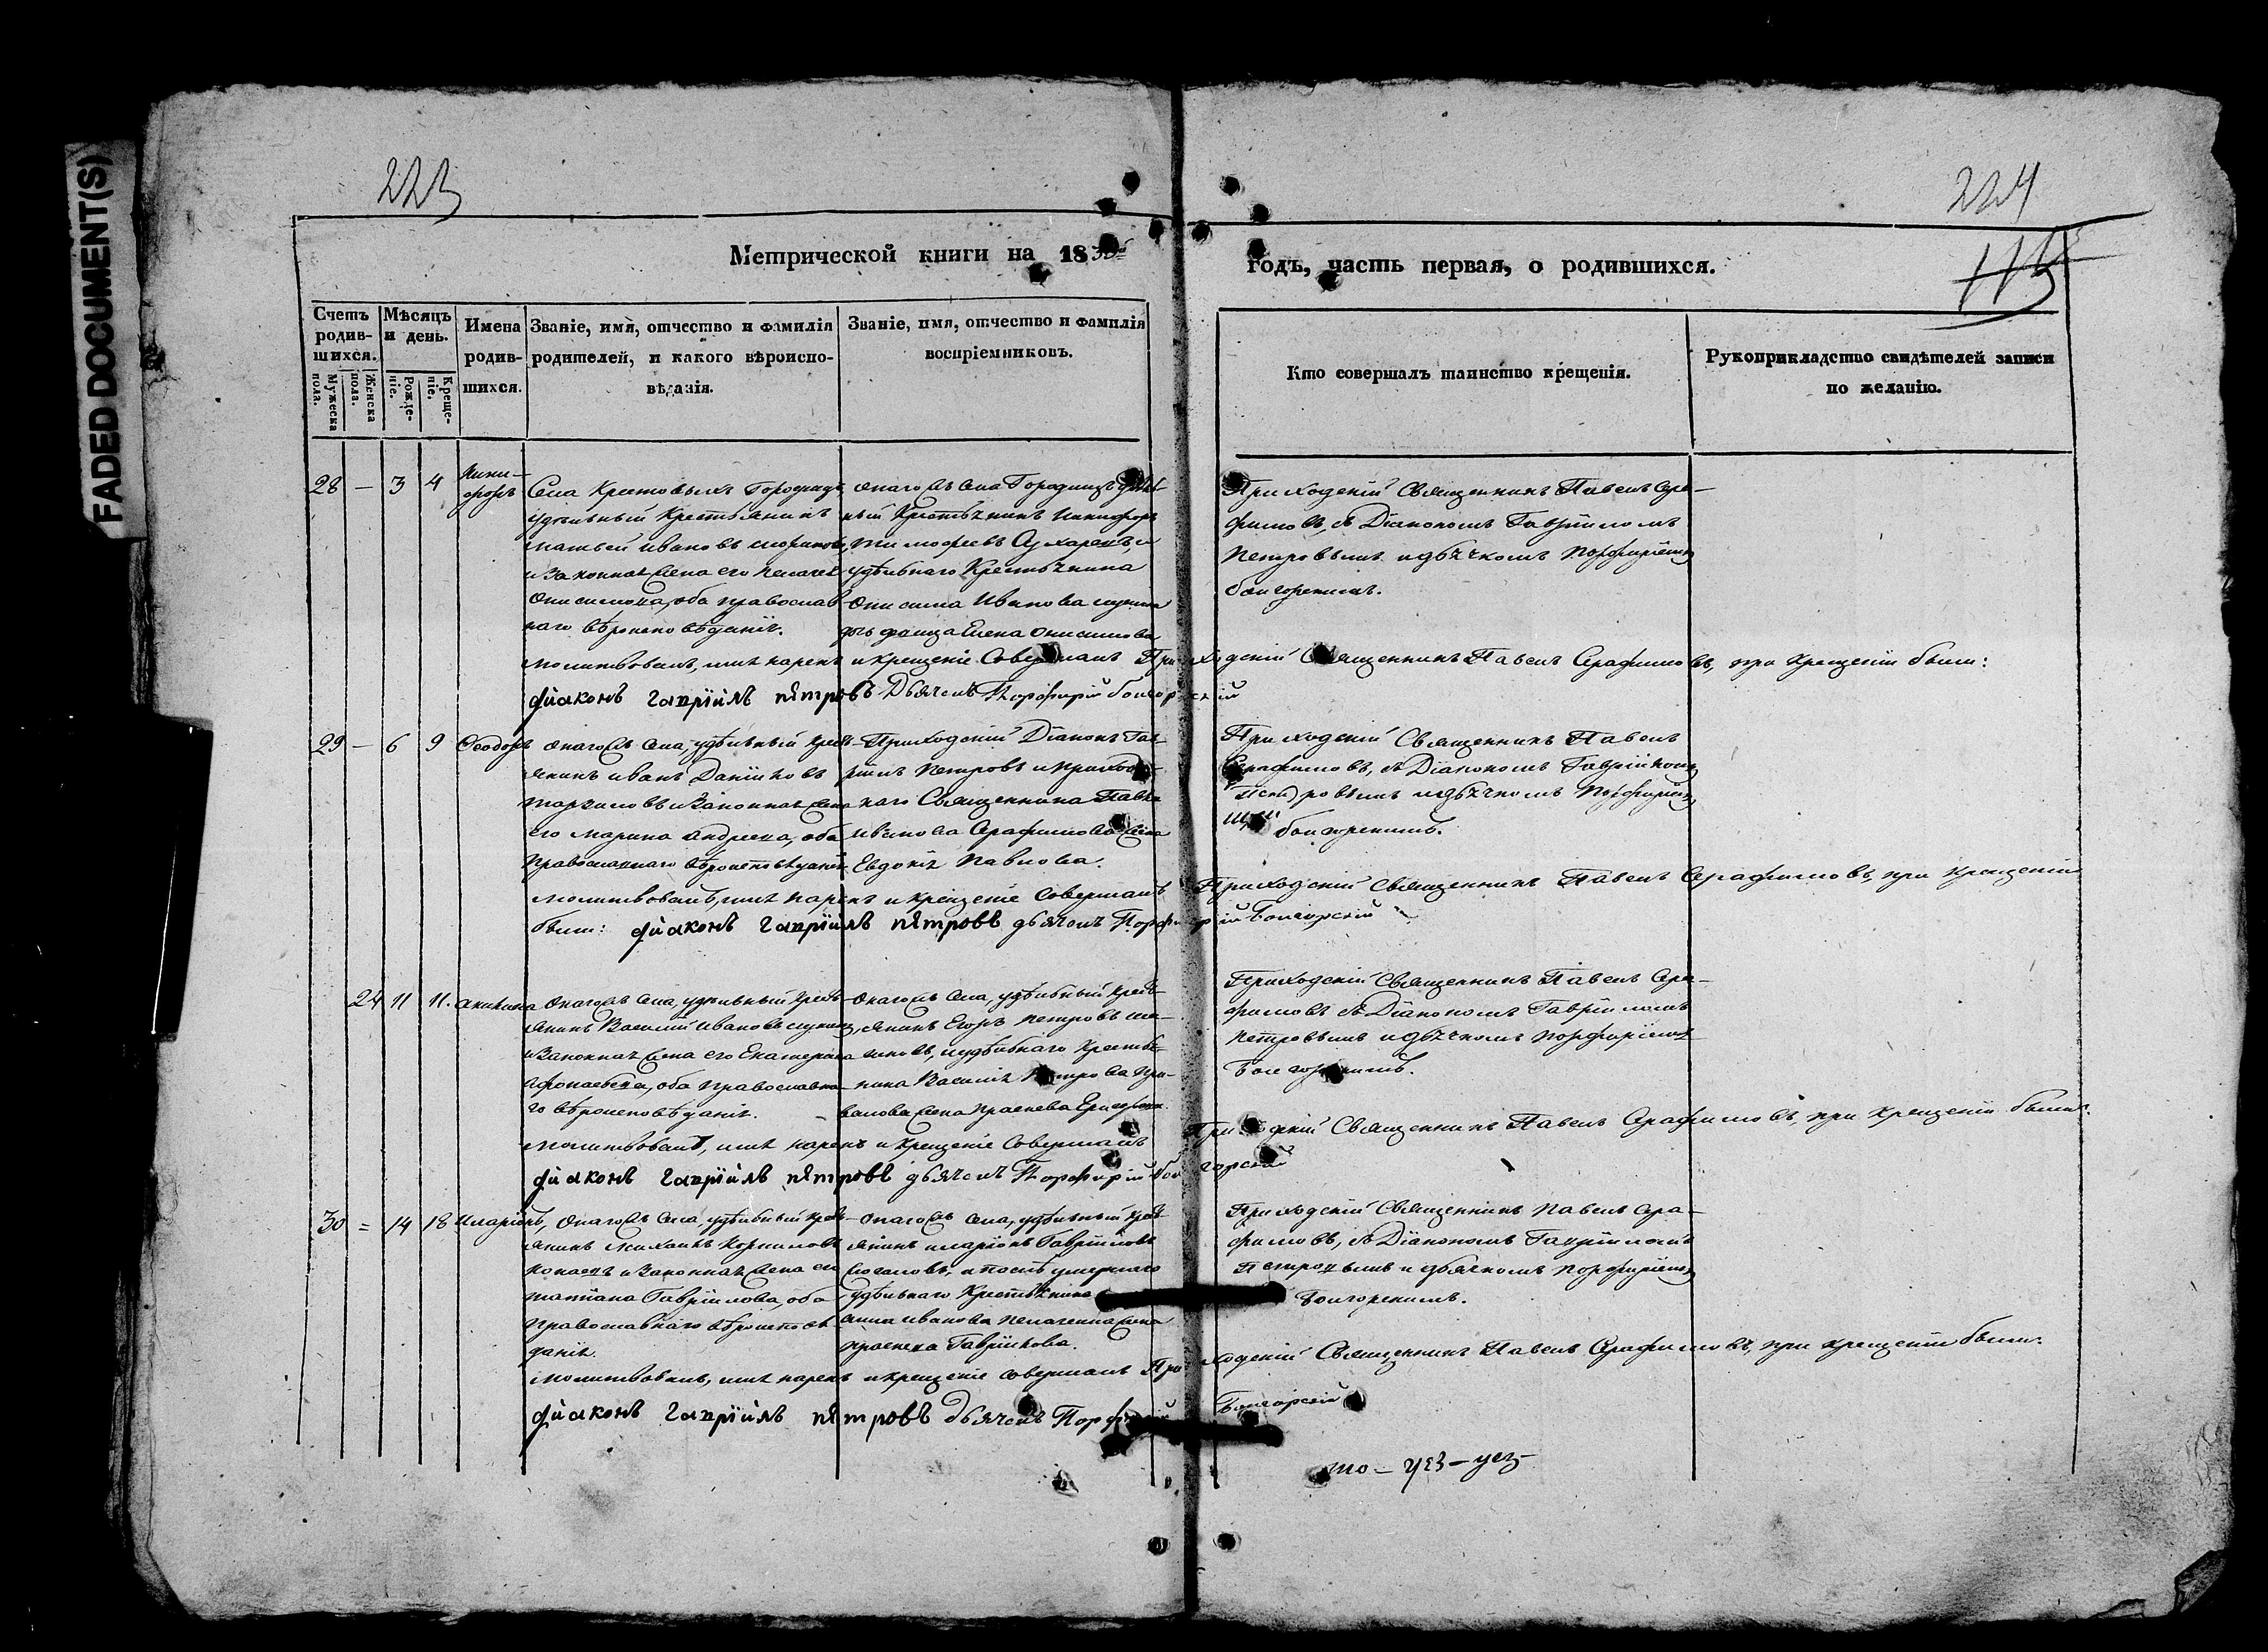 FADED DOCUMENT(S)
223
224
113
Метрической книги на 18
годъ, часть первая, о родившихся.
Счетъ родившихся.
Мужеска пола.
Женска пола.
Мѣсяцъ и день.
Рожденіе.
Крещеніе.
Имена родившихся.
Званіе, имя, отчество и фамилія родителей, и какого вѣроисповѣданія.
Званіе, имя, отчество и фамилія воспріемниковъ.
Кто совершалъ таинство крещенія.
Рукоприкладство свидѣтелей записи по желанію.
28 — 3 4
Ники-
форъ
Села Крестовыхъ Городищъ
удѣльный Крестьянинъ
Матвей Ивановъ
и Законная жена его Пелагея
Онисимова, оба православ-
наго вѣроисповѣданія.
онагожъ села Городищъ удѣль-
ный Крестьянинъ Никифоръ
Тимофеевъ
удѣльнаго Крестьянина
Онисима Иванова
дочь девица Елена Онисимова
Приходскій Священникъ Павелъ Сера-
фимовъ, съ Діакономъ Гавріиломъ
Петровымъ и дьячкомъ Порфиріемъ
Боигорскимъ.
Молитвовалъ, имя нарекъ и крещеніе Совершалъ Приходскій Священникъ Павелъ Серафимовъ, при крещеніи были:
діаконъ гавріилъ пѣтровъ Дьячекъ Порфирій
29 — 6 9 Феодоръ
онагожъ села, удѣльный крест-
янинъ Иванъ Даниловъ
и Законная жена
его Марина Андреева, оба
Православнаго вѣроисповѣданія.
Приходскій Діаконъ Гав-
ріилъ Петровъ и приход-
скаго Священника Павла
Иванова Серафимова жена
Евдокія Павлова.
Приходскій Священникъ Павелъ
Серафимовъ, съ Діакономъ Гавріиломъ
Петровымъ и дьячкомъ Порфиріемъ
Боигорскимъ.
Молитвовалъ, имя нарекъ и крещеніе Совершалъ Приходскій Священникъ Павелъ Серафимовъ, при крещеніи
были: діаконъ гавріилъ пѣтровъ дьячекъ Порфирій
24 11 11. Акилина
Онагожъ села, удѣльный крест-
янинъ Василій Ивановъ
и Законная жена его Екатерина
Афонасьева, оба Православна-
го вѣроисповѣданія.
Онагожъ села, удѣльный крест-
янинъ Егоръ Петровъ
и удѣльнаго крестья-
нина Василія Петрова
жена Прасковья
Приходскій Священникъ Павелъ Сера-
фимовъ съ Діакономъ Гавріиломъ
Петровымъ и дьячкомъ Порфиріемъ
Боигорскимъ.
Молитвовалъ, имя нарекъ и крещеніе Совершалъ Приходскій Священникъ Павелъ Серафимовъ, при крещеніи были:
діаконъ гавріилъ пѣтровъ дьячекъ Порфирій
30 = 14 18 Иларіонъ,
Онагожъ села, удѣльный крест-
янинъ Михаилъ Корниловъ
и Законная жена его
Татіана Гавріилова, оба
Православнаго вѣроисповѣ-
данія.
Онагожъ села, удѣльный крест-
янинъ Иларіонъ Гавріиловъ
и послѣ умершаго
удѣльнаго Крестьянина
Иванова жена
Прасковья Гаврілова.
Приходскій Священникъ Павелъ Сера-
фимовъ, съ Діакономъ Гавріиломъ
Петровымъ и дьячкомъ Порфиріемъ
Боигорскимъ.
Молитвовалъ, имя нарекъ и крещеніе совершалъ Приходскій Священникъ Павелъ Серафимовъ, при крещеніи были:
діаконъ гавріилъ пѣтровъ дьячекъ Порфирій